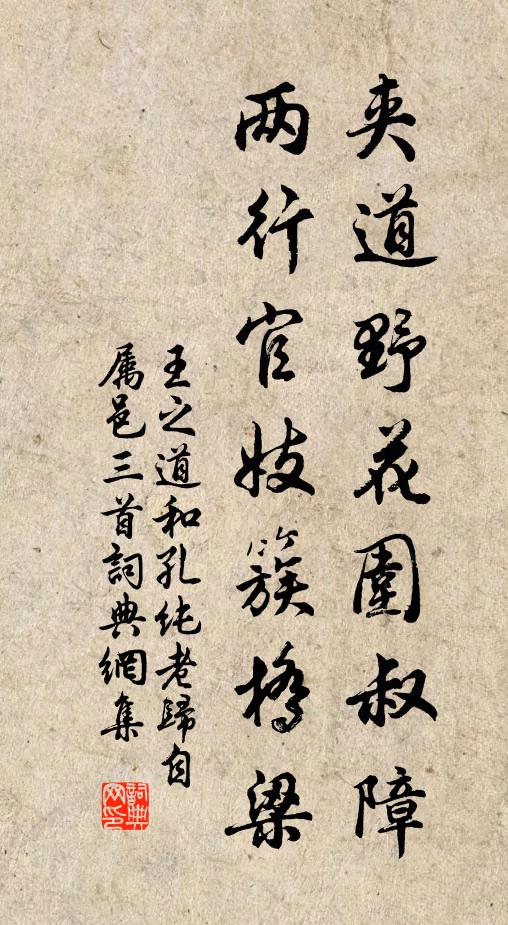 夹道野花围叔障
两行官妓簇桥梁
王之道和孔纯老歸自
属邑三首詞典網集
詞典网印